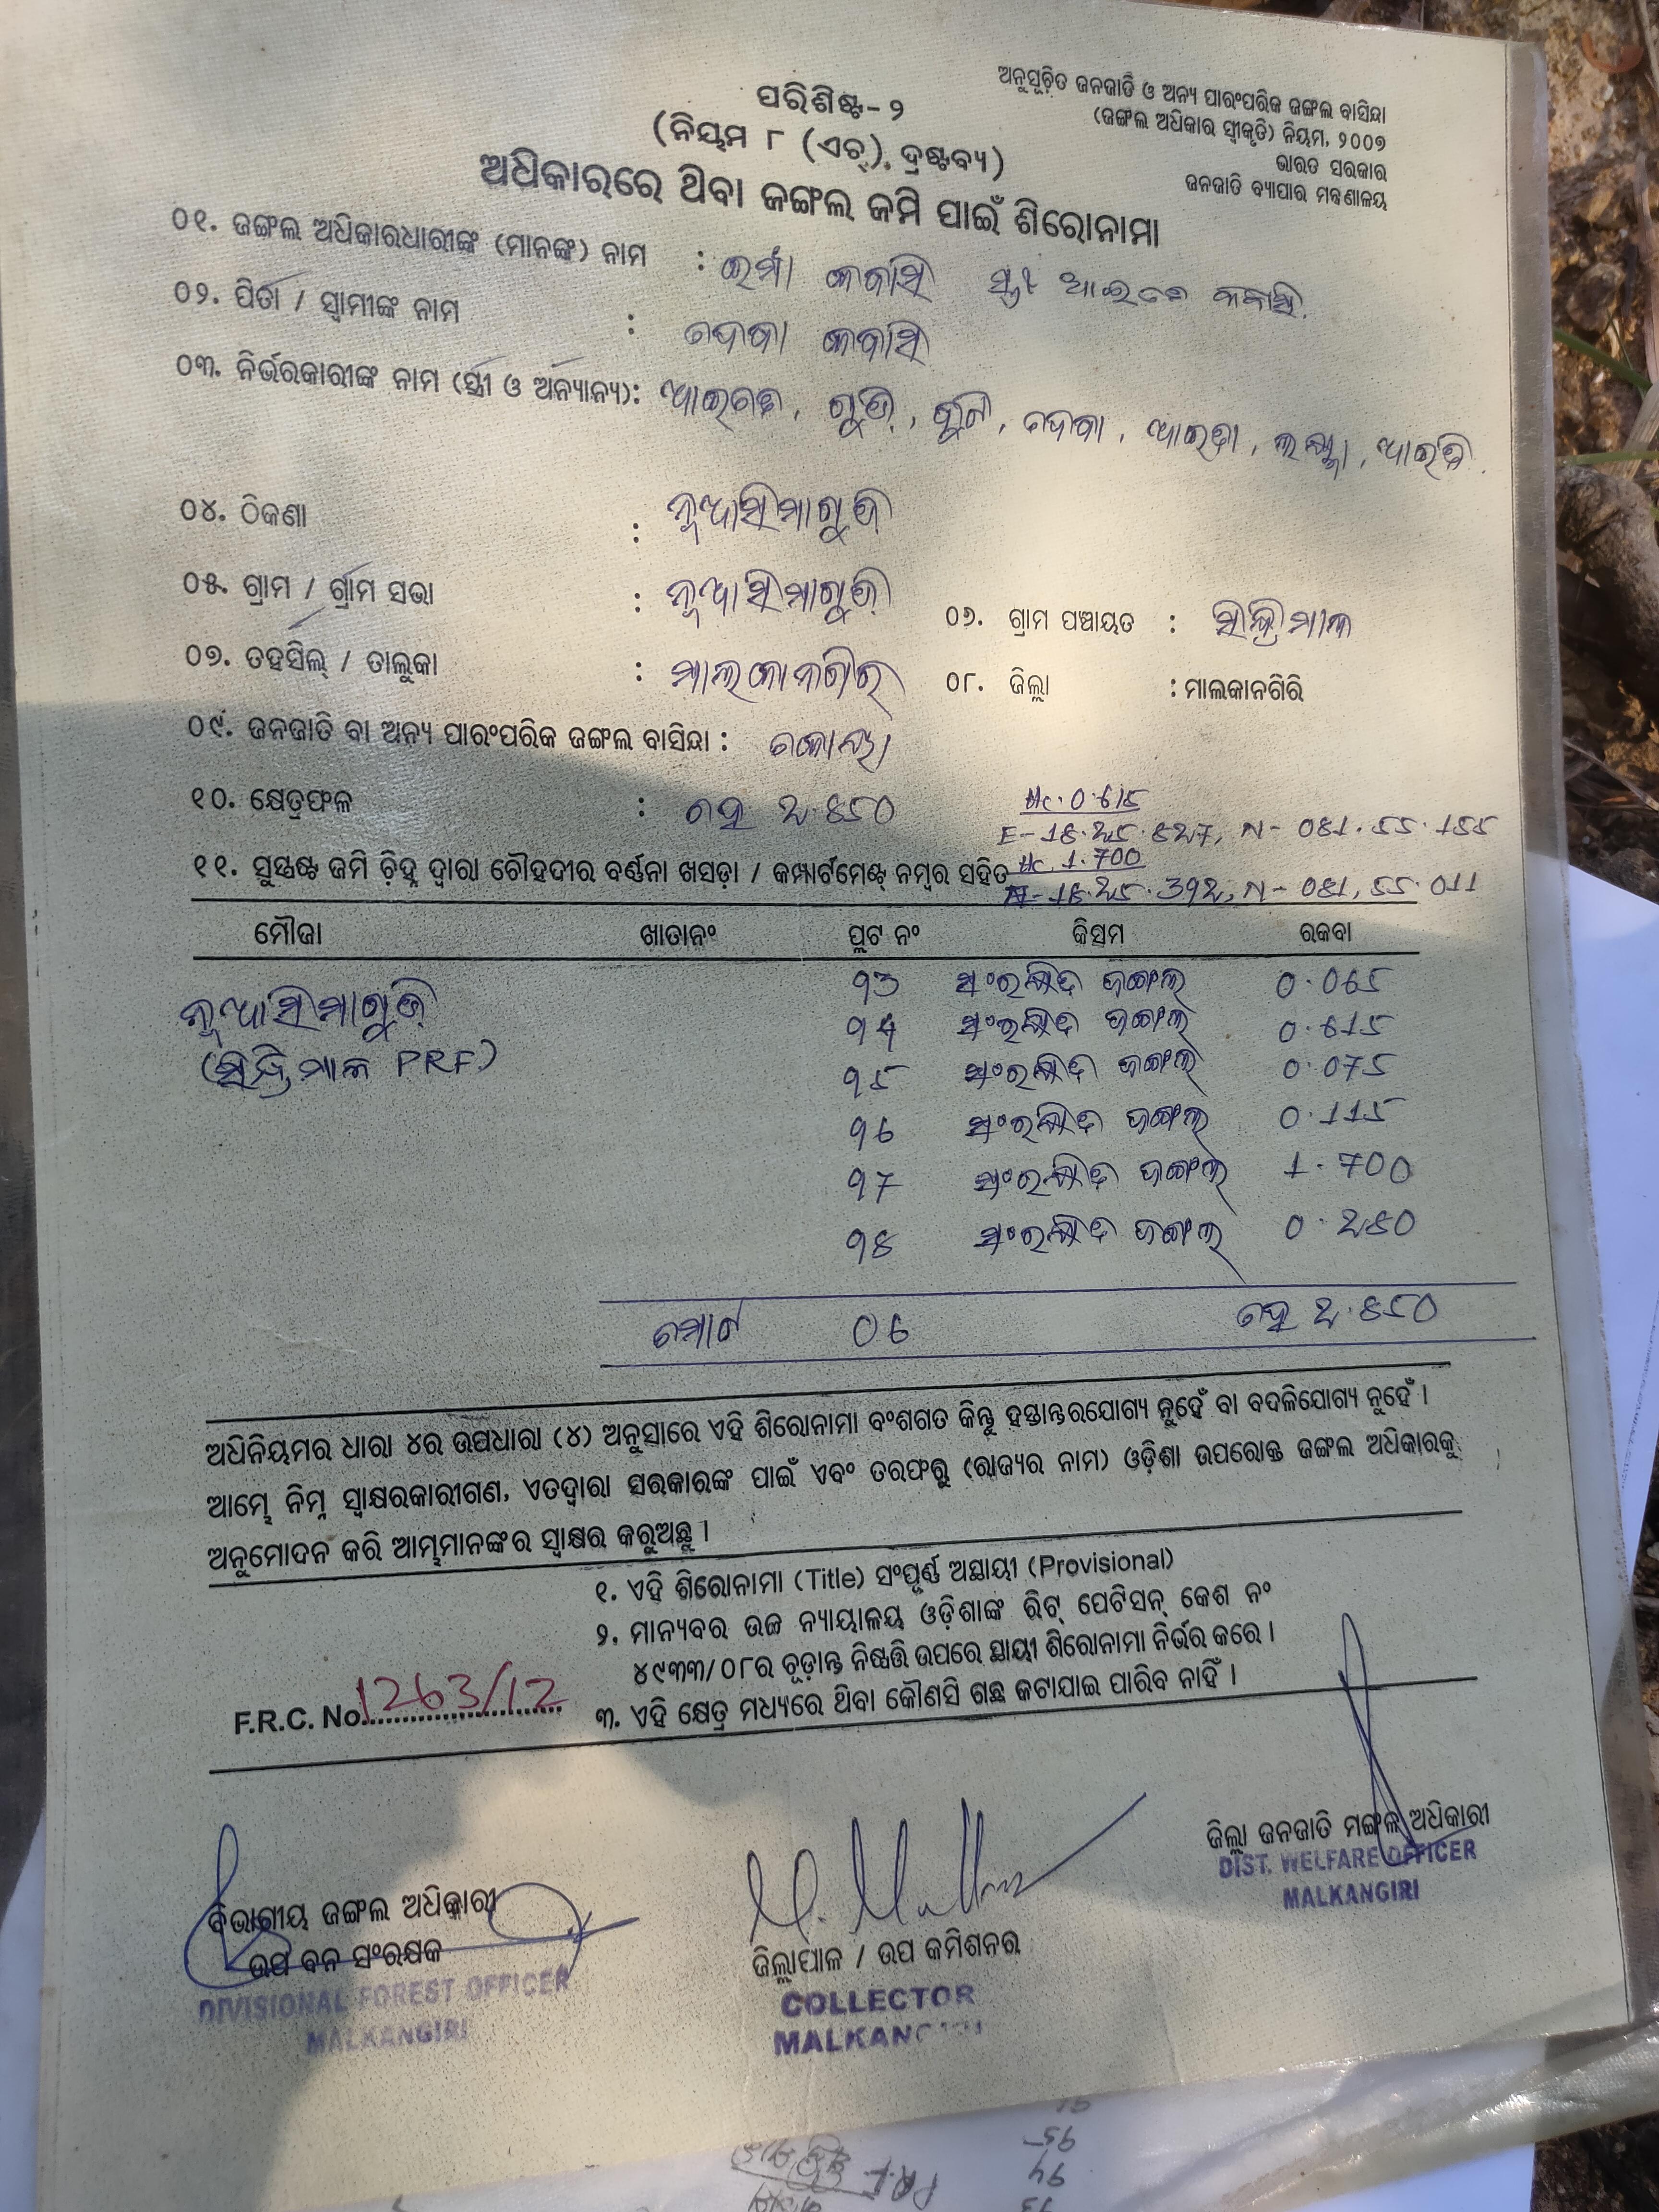 ଅନୁସୂଚିତ ଜନଜାତି ଓ ଅନ୍ୟ ପାରଂପରିକ ଜଙ୍ଗଲ ବାସିନ୍ଦା
(ଜଙ୍ଗଲ ଅଧିକାର ସ୍ୱୀକୃତି) ନିୟମ, ୨୦୦୭
ଭାରତ ସରକାର
ଜନଜାତି ବ୍ୟାପାର ମନ୍ତ୍ରଣାଳୟ
ପରିଶିଷ୍ଟ-୨
(ନିୟମ ୮ (ଏଚ୍). ଦ୍ରଷ୍ଟବ୍ୟ)
ଅଧିକାରରେ ଥିବା ଜଙ୍ଗଲ ଜମି ପାଇଁ ଶିରୋନାମା
୦୧. ଜଙ୍ଗଲ ଅଧିକାରଧାରୀଙ୍କ (ମାନଙ୍କ) ନାମ : ଇର୍ମା କବାସି ସ୍ତ୍ରୀ ଆଇତେ କବାସି.
୦୨. ପିତା / ସ୍ୱାମୀଙ୍କ ନାମ : ଦେବା କବାସି
୦୩. ନିର୍ଭରକାରୀଙ୍କ ନାମ (ସ୍ତ୍ରୀ ଓ ଅନ୍ୟାନ୍ୟ): ଆଇତେ, ଦେବା, ଆଇତା,
୦୪. ଠିକଣା : ନୂଆସିମାଗୁଡ଼ି
୦୫. ଗ୍ରାମ / ଗ୍ରାମ ସଭା : ନୂଆସିମାଗୁଡ଼ି ୦୬. ଗ୍ରାମ ପଞ୍ଚାୟତ : ସିନ୍ଧ୍ରିମାଳ
୦୭. ତହସିଲ୍ / ତାଲୁକା : ମାଲକାନଗିରି ୦୮. ଜିଲ୍ଲା : ମାଲକାନଗିରି
୦୯. ଜନଜାତି ବା ଅନ୍ୟ ପାରଂପରିକ ଜଙ୍ଗଲ ବାସିନ୍ଦା : କୋୟା
୧୦. କ୍ଷେତ୍ରଫଳ : ହେ ୨.୫50
Hc. 0.615
E-18.25.827, N-081.55.155
୧୧. ସୁସ୍ପଷ୍ଟ ଜମି ଚିହ୍ନ ଦ୍ୱାରା ଚୌହଦୀର ବର୍ଣ୍ଣନା ଖସଡ଼ା / କମ୍ପାର୍ଟମେଣ୍ଟ୍ ନମ୍ବର ସହିତ Hc. 1.700
18.25.392, N-081.55.011
ମୌଜା ଖାତାନଂ ପ୍ଲଟ ନଂ କିସମ ରକବା
ନୂଆସିମାଗୁଡ଼ି 93 ସଂରକ୍ଷିତ ଜଙ୍ଗଲ 0.065
(ସିନ୍ଧ୍ରିମାଳ PRF) 94 ସଂରକ୍ଷିତ ଜଙ୍ଗଲ 0.615
95 ସଂରକ୍ଷିତ ଜଙ୍ଗଲ 0.075
96 ସଂରକ୍ଷିତ ଜଙ୍ଗଲ 0.115
97 ସଂରକ୍ଷିତ ଜଙ୍ଗଲ 1.700
98 ସଂରକ୍ଷିତ ଜଙ୍ଗଲ 0.280
ମୋଟ 06 ହେ 2.850
ଅଧିନିୟମର ଧାରା ୪ର ଉପଧାରା (୪) ଅନୁସାରେ ଏହି ଶିରୋନାମା ବଂଶଗତ କିନ୍ତୁ ହସ୍ତାନ୍ତରଯୋଗ୍ୟ ନୁହେଁ ବା ବଦଳିଯୋଗ୍ୟ ନୁହେଁ ।
ଆମ୍ଭେ ନିମ୍ନ ସ୍ୱାକ୍ଷରକାରୀଗଣ, ଏତଦ୍ଦ୍ୱାରା ସରକାରଙ୍କ ପାଇଁ ଏବଂ ତରଫରୁ (ରାଜ୍ୟର ନାମ) ଓଡ଼ିଶା ଉପରୋକ୍ତ ଜଙ୍ଗଲ ଅଧିକାରକୁ
ଅନୁମୋଦନ କରି ଆମ୍ଭମାନଙ୍କର ସ୍ୱାକ୍ଷର କରୁଅଛୁ ।
୧. ଏହି ଶିରୋନାମା (Title) ସଂପୂର୍ଣ୍ଣ ଅସ୍ଥାୟୀ (Provisional)
୨. ମାନ୍ୟବର ଉଚ୍ଚ ନ୍ୟାୟାଳୟ ଓଡ଼ିଶାଙ୍କ ରିଟ୍ ପେଟିସନ୍ କେଶ ନଂ
୪୯୩୩/୦୮ର ଚୂଡ଼ାନ୍ତ ନିଷ୍ପତ୍ତି ଉପରେ ସ୍ଥାୟୀ ଶିରୋନାମା ନିର୍ଭର କରେ ।
୩. ଏହି କ୍ଷେତ୍ର ମଧ୍ୟରେ ଥିବା କୌଣସି ଗଛ କଟାଯାଇ ପାରିବ ନାହିଁ ।
F.R.C. No. 1263/12
ଜିଲ୍ଲା ଜନଜାତି ମଙ୍ଗଳ ଅଧିକାରୀ
DIST. WELFARE OFFICER
MALKANGIRI
ବିଭାଗୀୟ ଜଙ୍ଗଲ ଅଧିକାରୀ
ଉପ ବନ ସଂରକ୍ଷକ
DIVISIONAL FOREST OFFICER
MALKANGIRI
ଜିଲ୍ଲାପାଳ / ଉପ କମିଶନର
COLLECTOR
MALKANGIRI